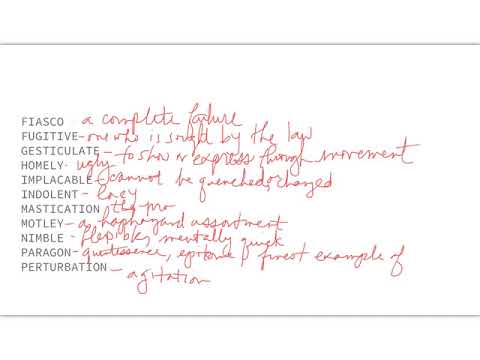 FIASCO a complete failure
FUGITIVE - one who is sought by the law
GESTICULATE - to show or express through movement
HOMELY - ugly
IMPLACABLE - cannot be quenched or changed
INDOLENT - lazy
MASTICATION
MOTLEY - a haphazard assortment
NIMBLE - flexible, mentally quick
PARAGON - quintessence, epitome, finest example of
PERTURBATION - agitation